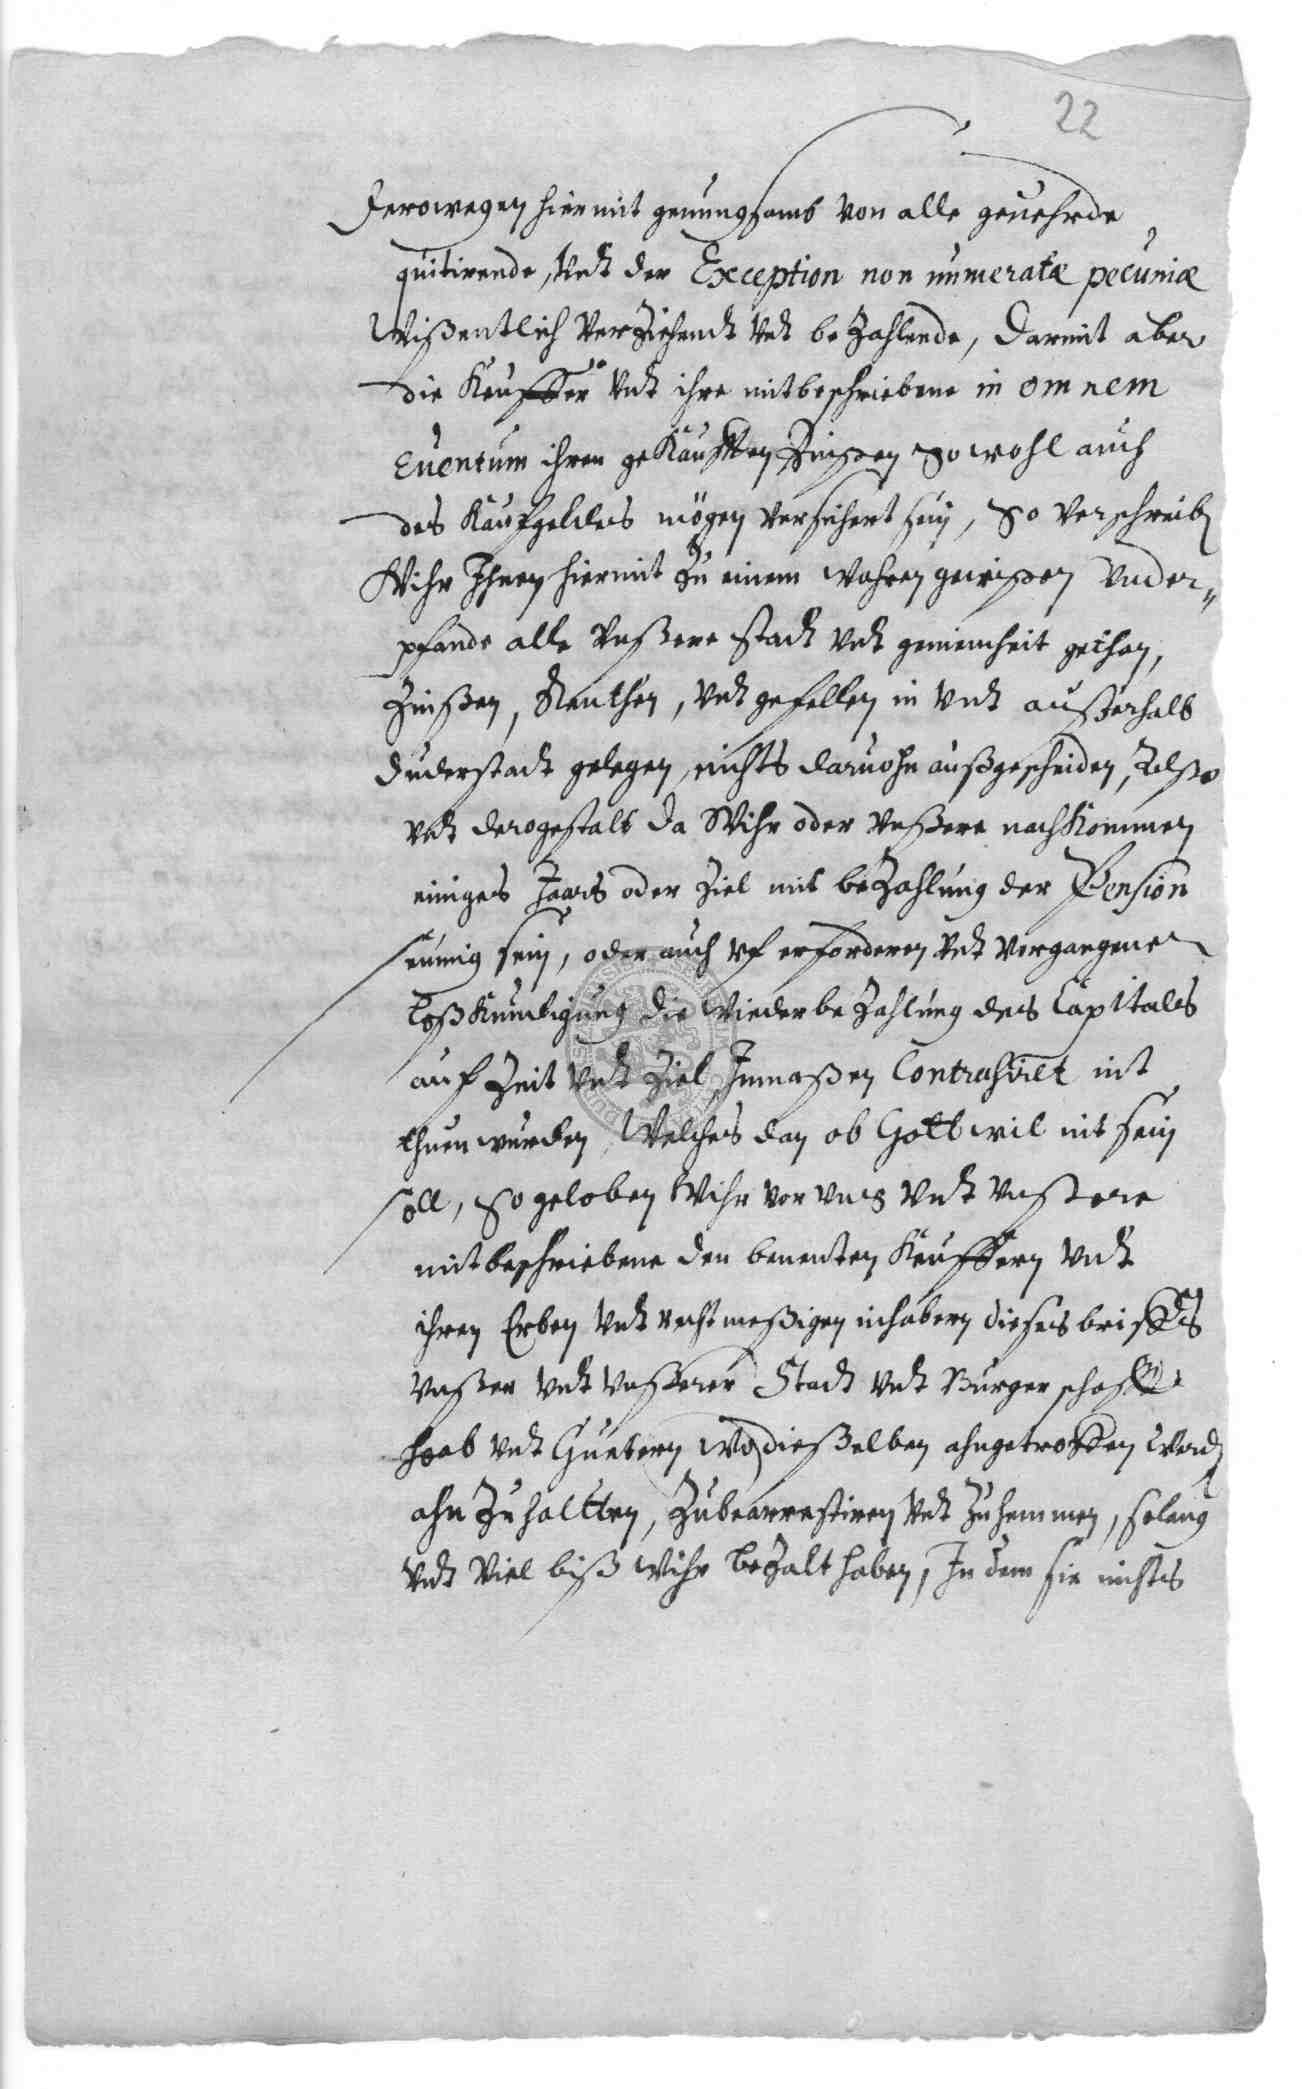 22
Derowegen hiermit genungsamb von alle geuehrde
quitirende, undt der Exception non numeratæ pecuniæ
Wißentlich verziehendt undt bezahlende, Darmit aber
die Keuffer undt ihre mitbeschriebene in omnem
Euentum ihren gekaufften Zinßen sowohl auch
des Kaufgeldes mögen versichert sein, so verschreiben
Wihr Ihnen hiermit zu einem wahren gewißen Under-
pfande alle Unßere stadt undt gemeinheit gethen,
Zinßen, Renthen, undt gefellen in undt außerhalb
Duderstadt gelegen, nichts daruohn außgescheiden, Alßo
undt dergestalt da Wihr oder Unßere nachkommen
einiges Jaars oder Ziel mit bezahlung der Pension
seumig sein, oder auch uf erforderen undt vorgangener
Loßkundigung die wiederbezahlung des Capitales
auf Zeit undt Ziel, Inmaßen Contrahirt nit
thuen wurden, Welches dan ob Gott wil nit sein
soll, so geloben Wihr vor uns undt Unßere
mitbeschriebene den benenten Keuffern undt
ihren Erben undt rechtmeßigen inhabern dieses brieffes
Unßer undt Unßerer Stadt undt Burgerschafft
haab undt Guetern wo dießelben ahngetroffen werden
ahn zuhaltten, zubearrestiren undt zuhemmen, solang
undt viel biß wihr bezalt haben, In dem sie nichts